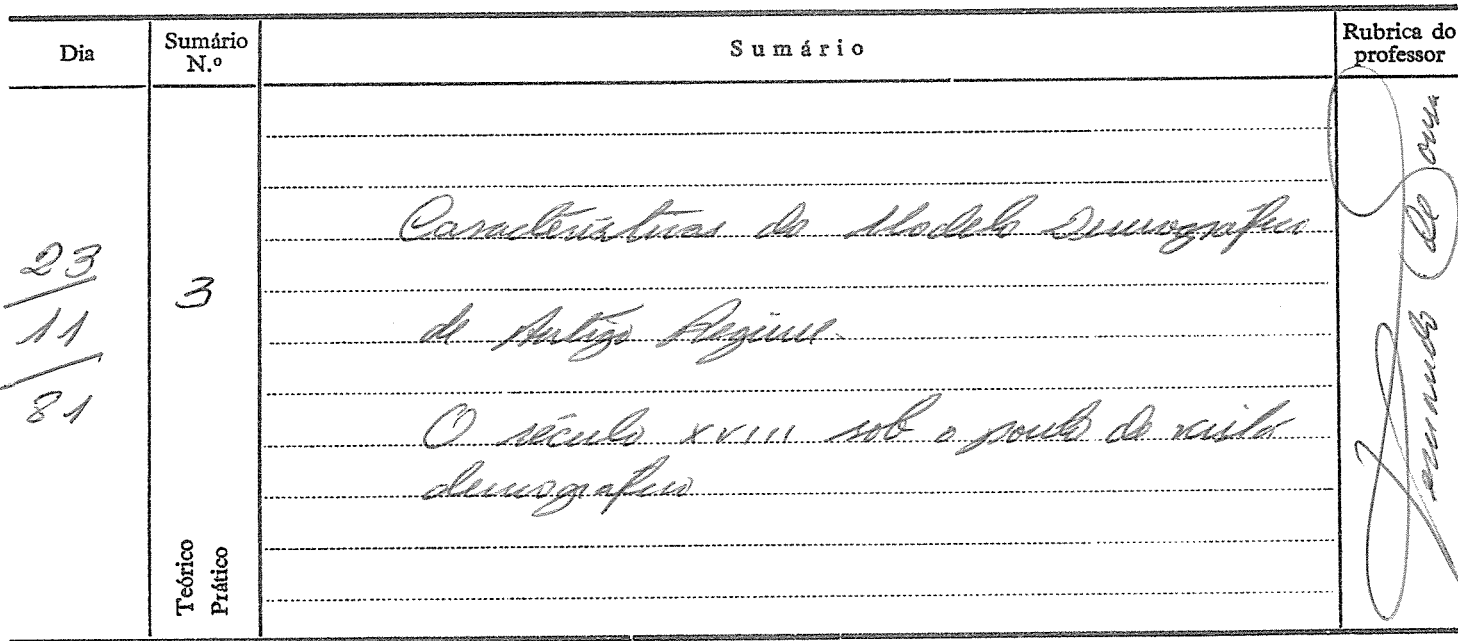 Dia
Sumário
N.º
Sumário
Rubrica do
professor
23
11
81
3
Características do Modelo Demografico
de Antigo Regime.
O século XVIII sob o ponto de vista
demografico
Teórico
Prático
Fernando de Sousa